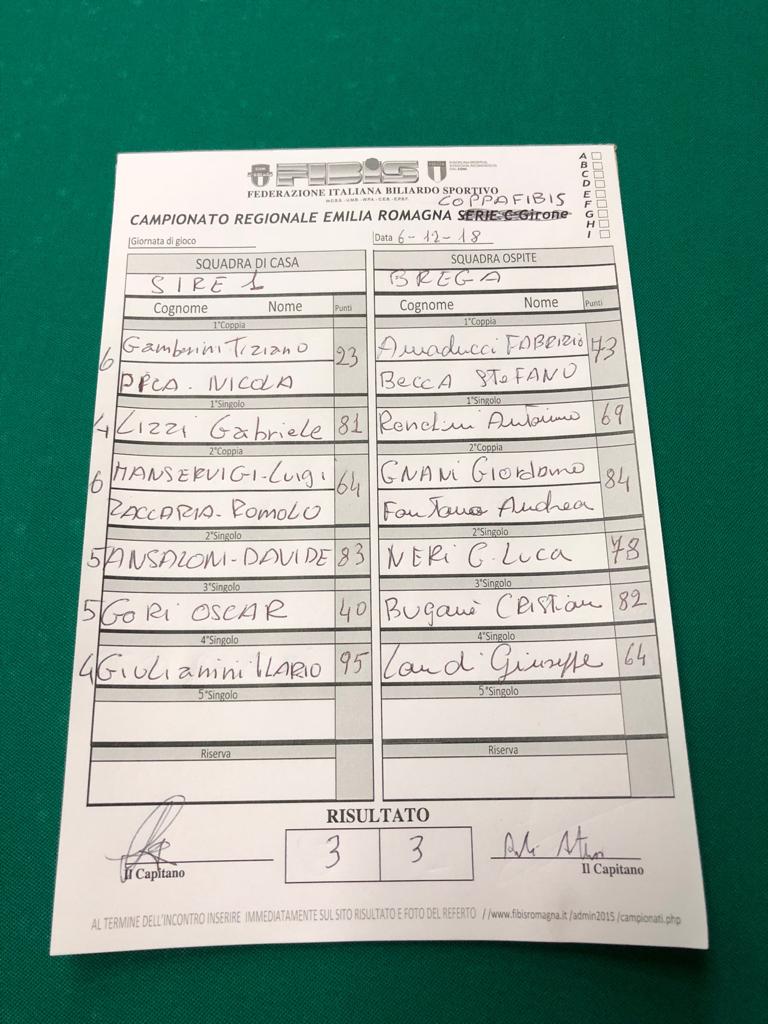 FIBIS
FEDERAZIONE ITALIANA BILIARDO SPORTIVO
COPPA FIBIS
CAMPIONATO REGIONALE EMILIA ROMAGNA SERIE C Girone
A
B
C
D
E
F
G
H
I
Giornata di gioco
Data 6-12-18
SQUADRA DI CASA SQUADRA OSPITE
SIRE 1 BREGA
Cognome Nome Punti Cognome Nome Punti
1°Coppia 1°Coppia
6 Gamberini Tiziano 23 Amaducci FABRIZIO 73
NICOLA BECCA STEFANO
1°Singolo 1°Singolo
4 Lizzi Gabriele 81 Ronchini Antonino 69
2°Coppia 2°Coppia
6 MANSERVIGI-Luigi 64 GNANI Giordano 84
ZACCARIA-ROMOLO Fontana Andrea
2°Singolo 2°Singolo
5 ANSALONI-DAVIDE 83 NERI G.Luca 78
3°Singolo 3°Singolo
5 GORI OSCAR 40 Buganè CRISTian 82
4°Singolo 4°Singolo
4 GiuLianini ILARIO 95 Landi Giuseppe 64
5°Singolo 5°Singolo
Riserva Riserva
RISULTATO
3 3
Il Capitano Il Capitano
AL TERMINE DELL'INCONTRO INSERIRE IMMEDIATAMENTE SUL SITO RISULTATO E FOTO DEL REFERTO //www.fibisromagna.it /admin2015 /campionati.php